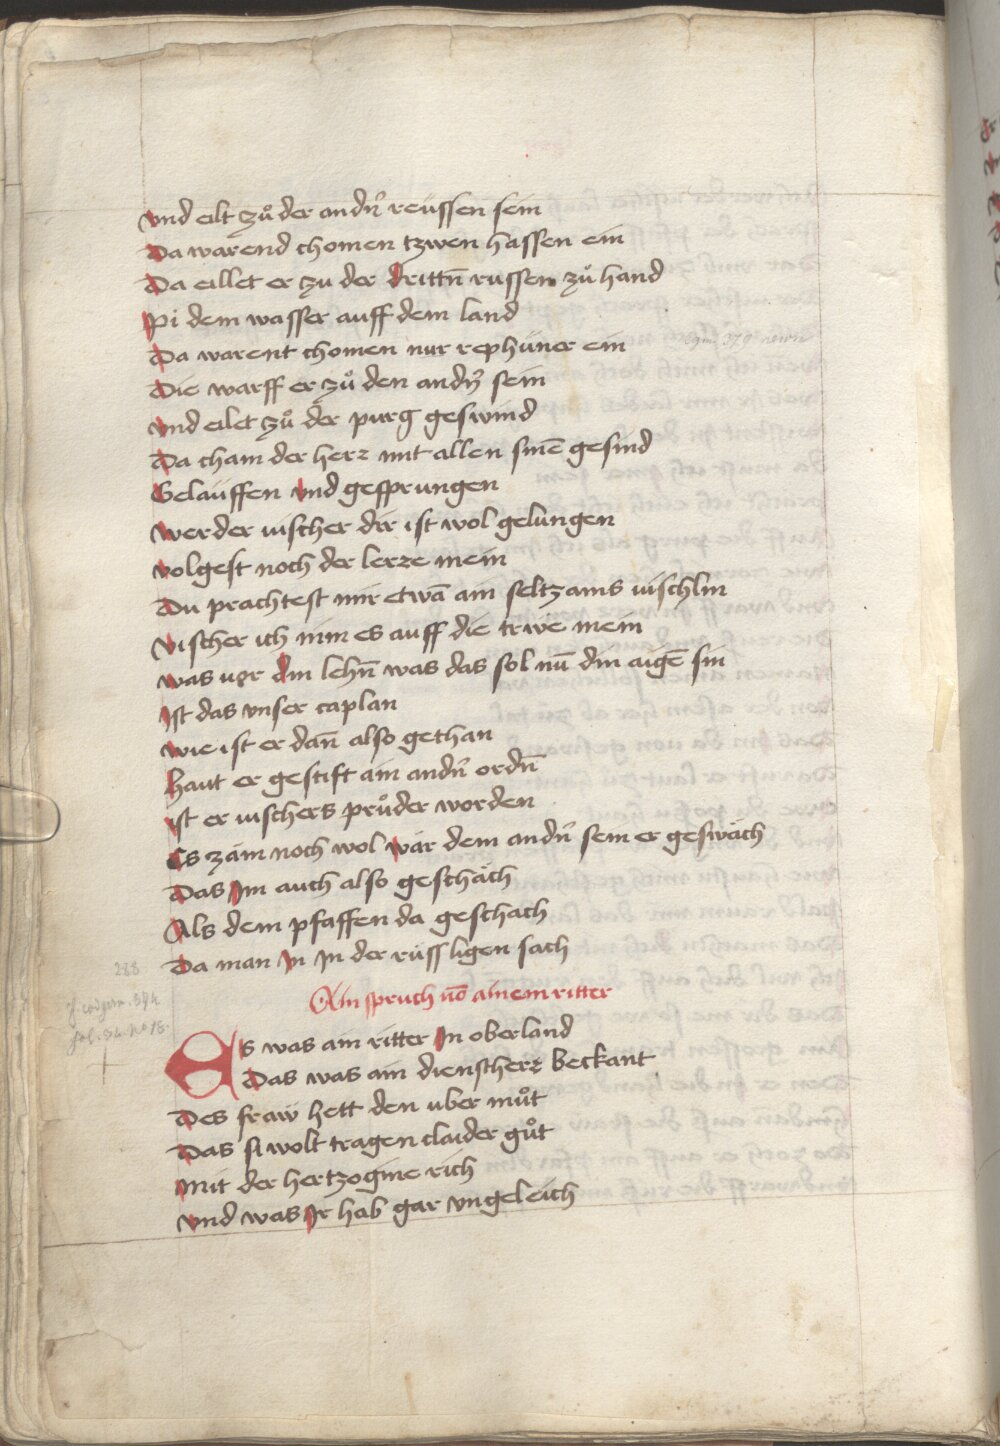 vnd eilt zuͦ der andn̄ reüssen sein
Da warend chomen tzwen hassen ein
Da eillet er zu der drittn̄ russen zuͦ hand
Pi dem wasser auff dem land
Da warent chomen nur rephüner ein
Die warff er zuͦ den andn̄ sein
vnd eilet zuͦ der purg geswind
Da cham der herr mit allen sinē gesind
Gelaüffen vnd gesprungen
werder uischer dir ist wol gelungen
volgest noch der lerre mein
Du prachtest mir etwā ain seltzams uischlin
Vischer ich nim es auff die trwe mein
was uor din lehn̄ was das sol nū din aigē sin
Ist das vnser caplan
wie ist er dan̄ also gethan
haut er gestift ain andn̄ ordn̄
ist er uischers pruͦder worden
Es zäm noch wol wär dem andn̄ sem er geswäch
Das Im auch also geschäch
Als dem pfaffen da geschach
Da man In In der rüss ligen sach
Ain spruch uō ainem ritter
Es was ain ritter In oberland
Das was ain diensther beckant
Des fraw hett den uber muͦt
Das si wolt tragen claider guͦt
mit der hertzogine rich
vnd was Ir hab gar vngeleich
288